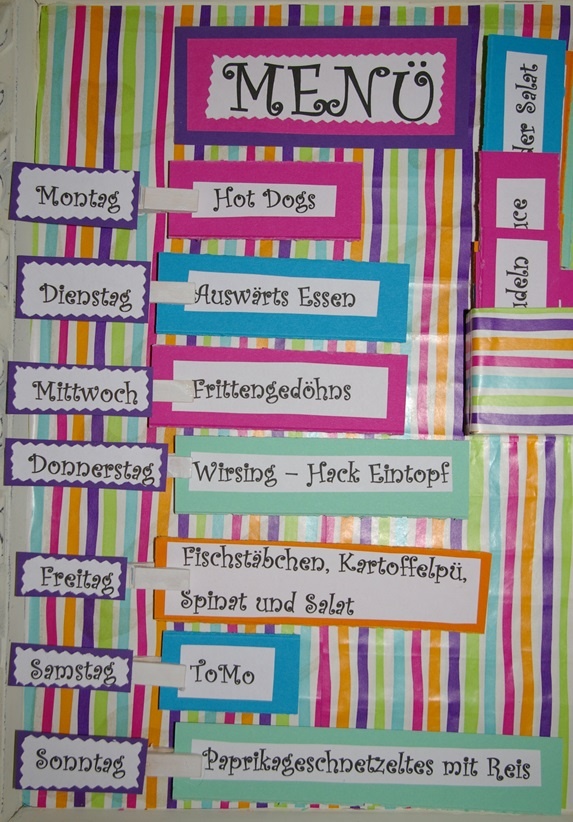 MENÜ
der Salat
Montag
Hot Dogs
Dienstag
Auswärts Essen
Mittwoch
Frittengedöhns
Donnerstag
Wirsing – Hack Eintopf
Freitag
Fischstäbchen, Kartoffelpü,
Spinat und Salat
Samstag
ToMo
Sonntag
Paprikageschnetzeltes mit Reis